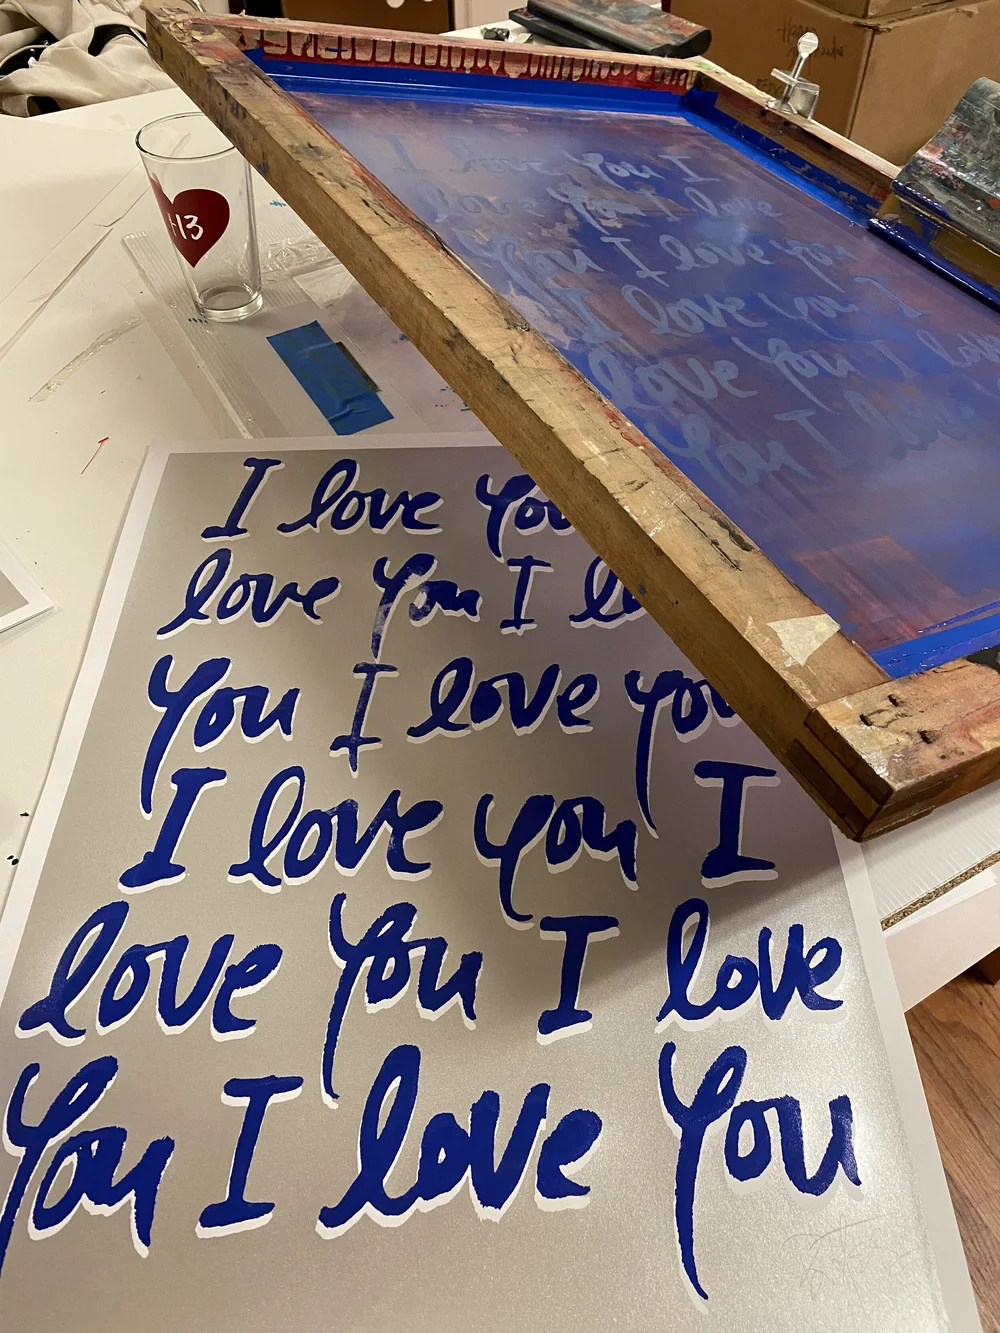 +13
I love You I
love You I love
You I love you
I love you I
love You I love
You I love You
I love You
love You I
You I love you
I love you I
love You I love
You I love You